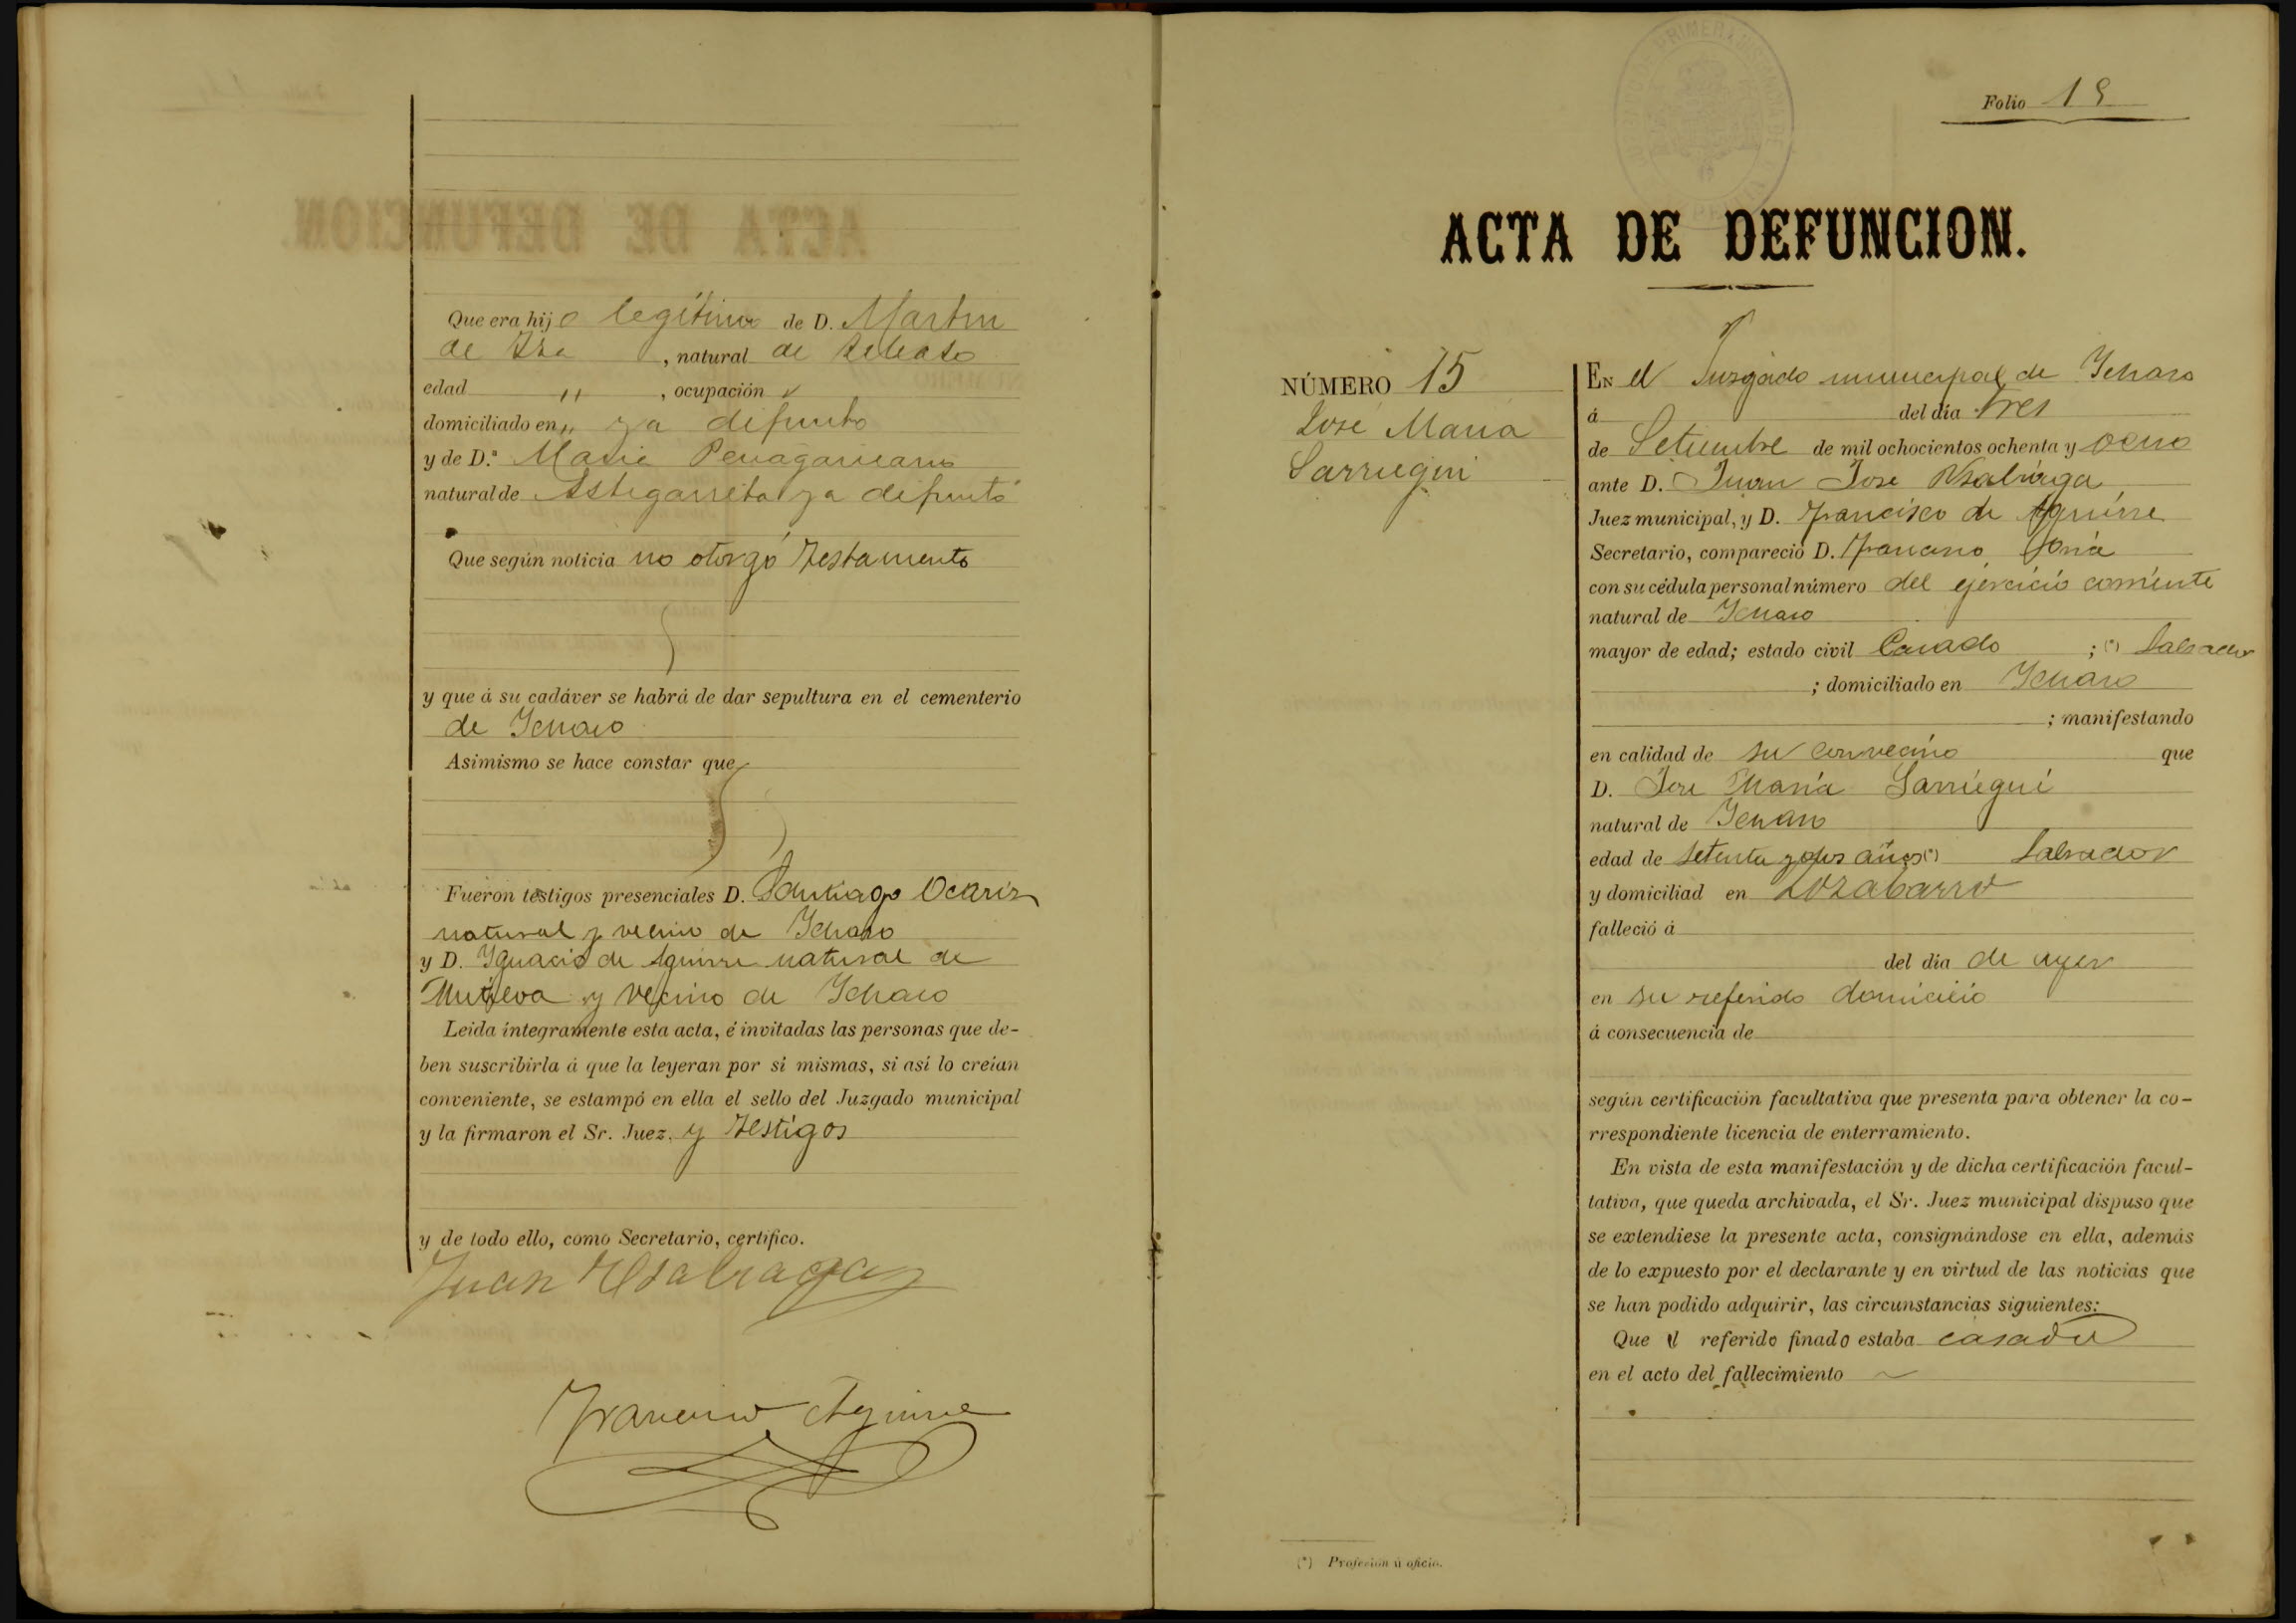 Que era hijo legítimo de D. Martin
de Iza, natural de
edad " , ocupación
domiciliado en " ya difunto
y de D.ª Maria Penagaricano
natural de Astigarreta ya difunta
Que según noticia no otorgó testamento
y que á su cadáver se habrá de dar sepultura en el cementerio
de Ichaso
Asimismo se hace constar que
Fueron testigos presenciales D. Santiago Ocariz
natural y vecino de Ichaso
y D. Ygnacio de Aguirre natural de
Mutiloa y vecino de Ichaso
Leida íntegramente esta acta, é invitadas las personas que de-
ben suscribirla á que la leyeran por sí mismas, si así lo creían
conveniente, se estampó en ella el sello del Juzgado municipal
y la firmaron el Sr. Juez, y testigos
y de todo ello, como Secretario, certifico.
Juan Usabiaga
Francisco Aguirre
Folio 15
ACTA DE DEFUNCION.
NÚMERO 15
José Maria
Sarriegui
EN el Juzgado municipal de Ichaso
á del día tres
de Setiembre de mil ochocientos ochenta y ocho
ante D. Juan José Usabiaga
Juez municipal, y D. Francisco de Aguirre
Secretario, compareció D. Francisco Goña
con su cédula personal número del ejercicio corriente
natural de Ichaso
mayor de edad; estado civil Casado ; (*) Labrador
; domiciliado en Ichaso
; manifestando
en calidad de su convecino que
D. José Maria Sarriegui
natural de Ichaso
edad de setenta y dos años (*) Labrador
y domiciliad en
falleció á
del día de ayer
en su referido domicilio
á consecuencia de
según certificación facultativa que presenta para obtener la co-
rrespondiente licencia de enterramiento.
En vista de esta manifestación y de dicha certificación facul-
tativa, que queda archivada, el Sr. Juez municipal dispuso que
se extendiese la presente acta, consignándose en ella, además
de lo expuesto por el declarante y en virtud de las noticias que
se han podido adquirir, las circunstancias siguientes:
Que el referido finado estaba casado
en el acto del fallecimiento
(*) Profesión ú oficio.